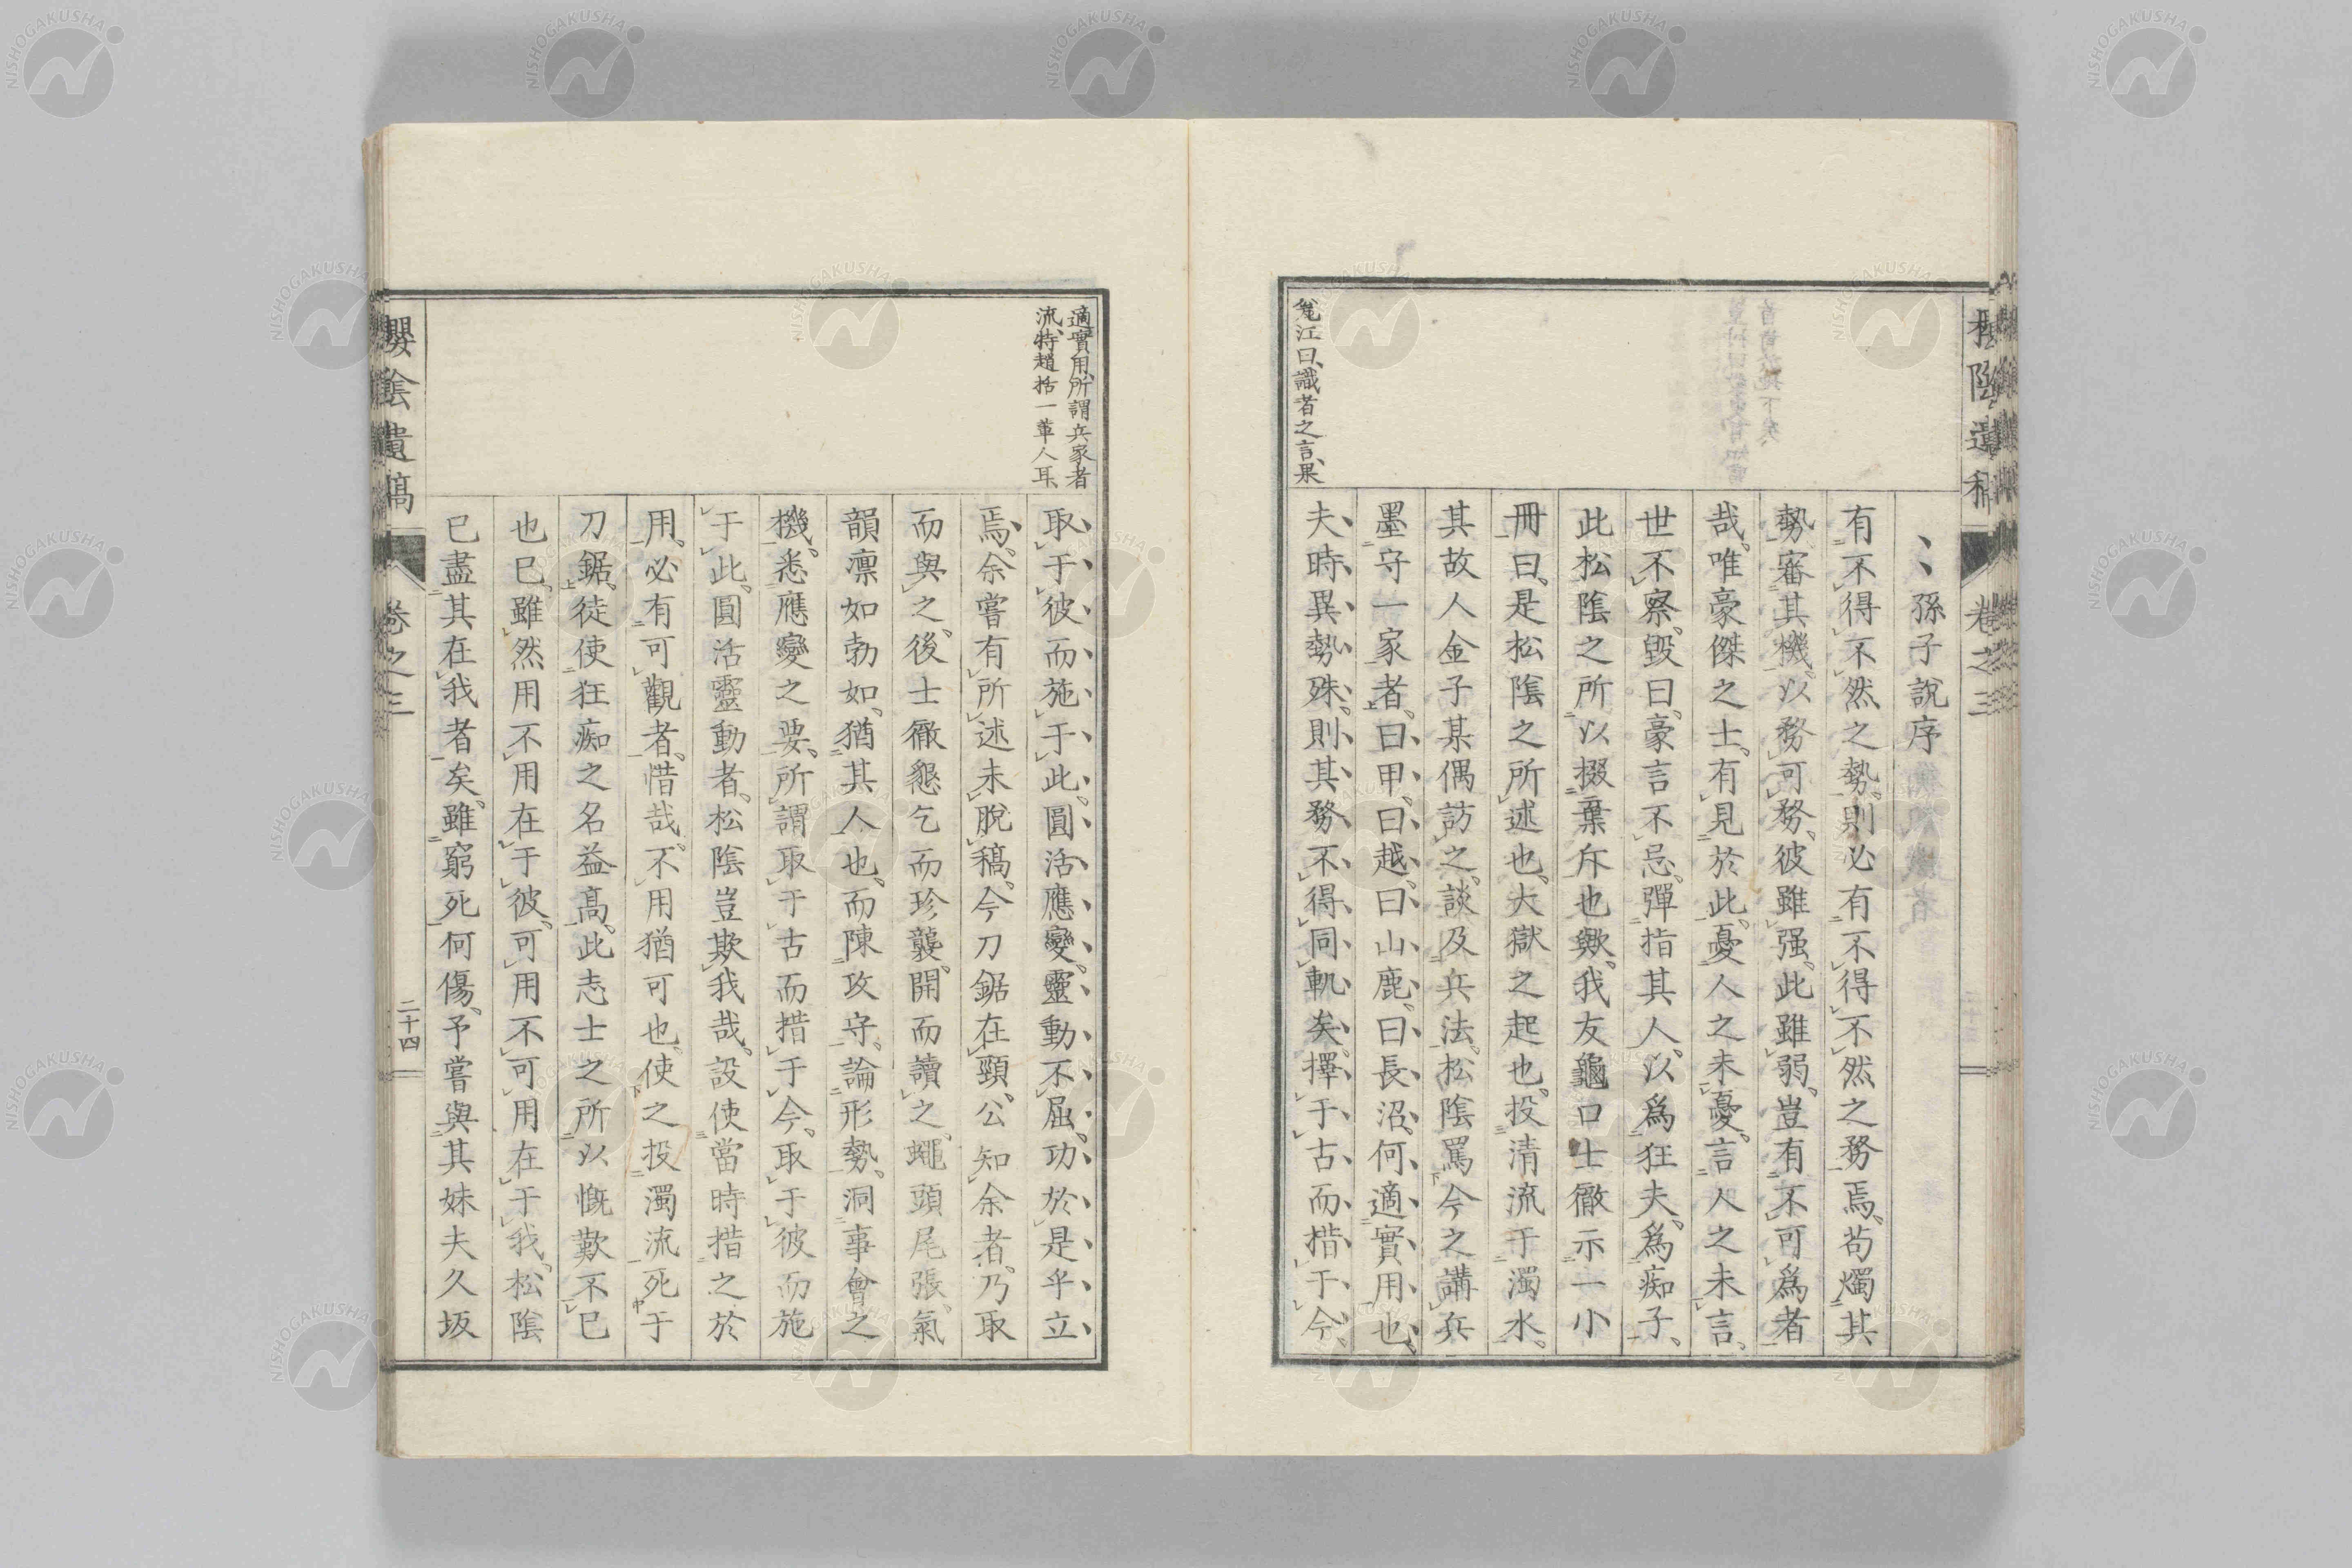 孫子說序
有不得不然之勢。則必有不得不然之務焉。苟燭其
勢審其機。以務可務。彼雖强。此雖弱。豈有不可爲者
哉。唯豪傑之士。有見於此。憂人之未憂。言人之未言。
世不察。毀曰。豪言不忌。彈指其人。以爲狂夫。爲痴子。
此松陰之所以掇棄斥也歟。我友龜口士徹示一小
冊曰。是松陰之所述也。大獄之起也。投清流于濁水。
其故人金子某偶訪之。談及兵法。松陰罵今之講兵
墨守一家者。曰甲。曰越。曰山鹿。曰長沼。何適實用也。
夫時異勢殊。則其務不得同軌矣。擇于古而措于今。
江曰、識者之言、果
適實用、所謂兵家者
流、特趙括一輩人耳、
取于彼而施于此。圓活應變。靈動不屈。功於是乎立
焉。余嘗有所述未脫稿。今刀鋸在頸。公知余者。乃取
而與之後。士徹懇乞而珍襲。開而讀之。蠅頭尾張。氣
韻凛如勃如。猶其人也。而陳攻守。論形勢。洞事會之
機。悉應變之要。所謂取于古而措于今。取于彼而施
于此。圓活靈動者。松陰豈欺我哉。設使當時措之於
用。必有可觀者。惜哉。不用猶可也。使之投濁流死于
刀鋸。徒使狂痴之名益高。此志士之所以慨歎不已
也已。雖然用不用在于彼。可用不可用在于我。松陰
已盡其在我者矣。雖窮死何傷。予嘗與其妹夫久坂
櫻陰遺稿
卷之三
二十四
櫻陰遺稿
卷之三
NISHOGAKUSHA